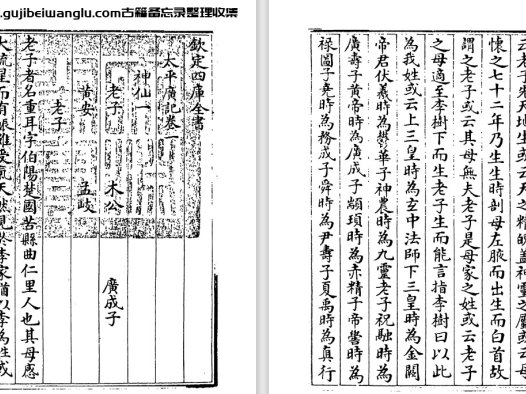 www.gujibeiwanglu.com古籍备忘录整理收集
欽定四庫全書
太平廣記卷一
神仙一
老子 木公 廣成子
黃安 孟岐
老子
老子者名重耳字伯陽楚國苦縣曲仁里人也其母感
大流星而有娠雖受氣天然見於李家猶以李為姓或
云老子先天地生或云天之精魄蓋神靈之屬或云母
懷之七十二年乃生生時剖母左腋而出生而白首故
謂之老子或云其母無夫老子是母家之姓或云老子
之母適至李樹下而生老子生而能言指李樹曰以此
為我姓或云上三皇時為玄中法師下三皇時為金闕
帝君伏羲時為鬱華子神農時為九靈老子祝融時為
廣壽子黃帝時為廣成子顓頊時為赤精子帝嚳時為
祿圖子堯時為務成子舜時為尹壽子夏禹時為真行